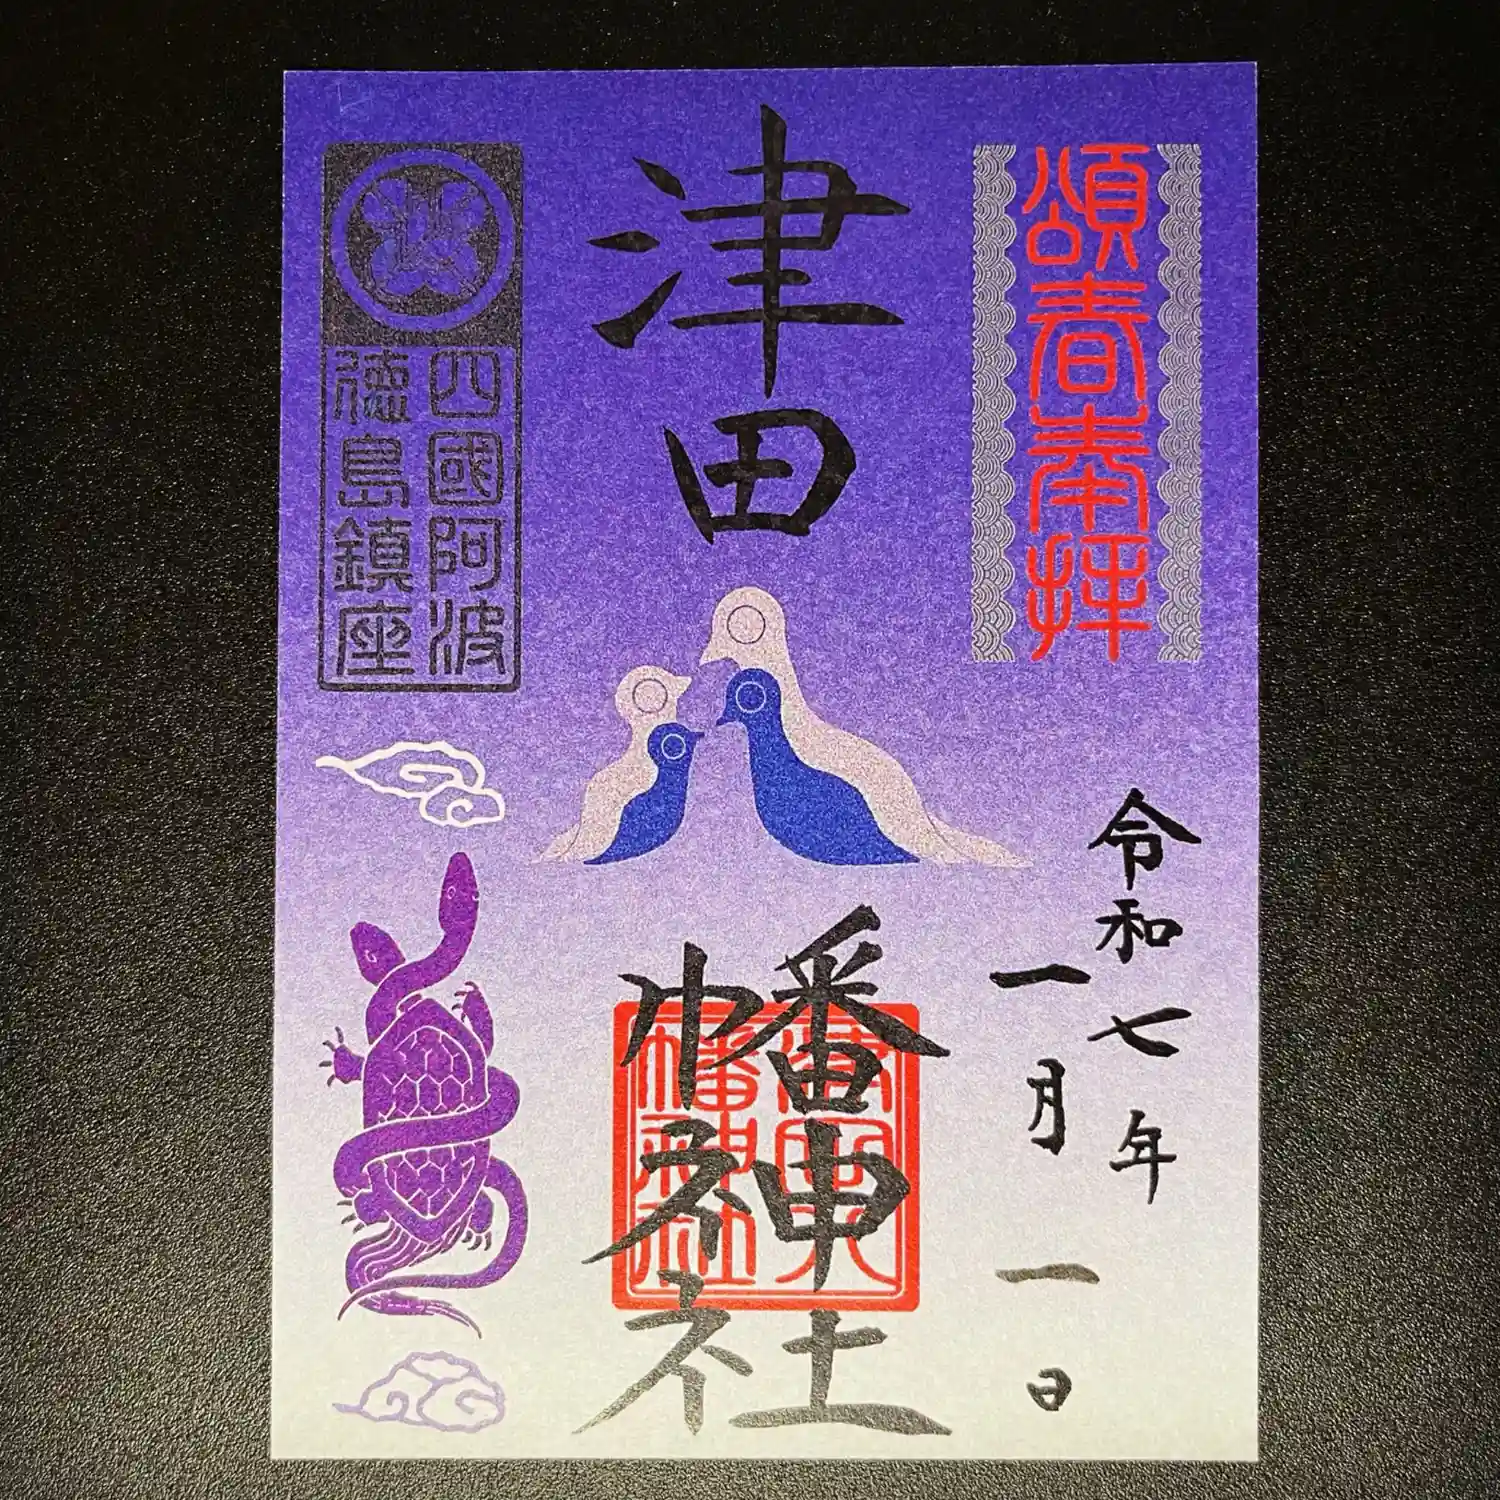 頌春奉拝
令和七年
一月一日
津田
幡神社
津田八
幡神社
四國阿波
徳島鎮座